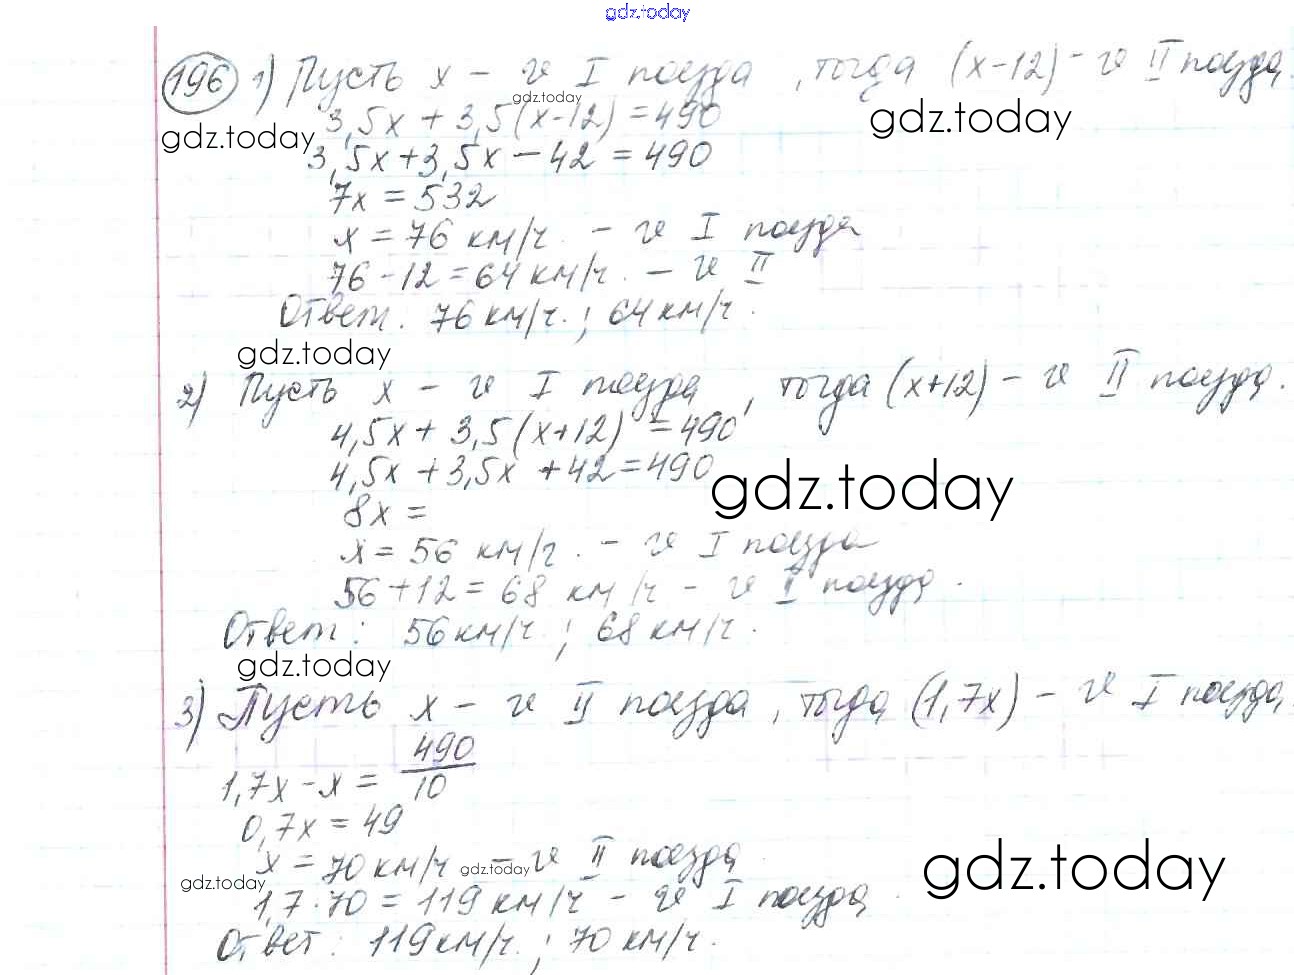 gdz.today
196 1) Пусть x – v I поезда, тогда (x-12) – v II поезда.
gdz.today
3,5x + 3,5(x-12) = 490
gdz.today
gdz.today
3,5x + 3,5x – 42 = 490
7x = 532
x = 76 км/ч. – v I поезда
76 - 12 = 64 км/ч. – v II
Ответ: 76 км/ч.; 64 км/ч.
gdz.today
2) Пусть x – v I поезда, тогда (x+12) – v II поезда.
4,5x + 3,5(x+12) = 490
4,5x + 3,5x + 42 = 490
gdz.today
8x =
x = 56 км/ч. – v I поезда
56 + 12 = 68 км/ч – v I поезда.
Ответ: 56 км/ч.; 68 км/ч.
gdz.today
3) Пусть x – v II поезда, тогда (1,7x) – v I поезда.
1,7x - x = 490/10
0,7x = 49
x = 70 км/ч – v II поезда
gdz.today
gdz.today
gdz.today
1,7 · 70 = 119 км/ч – v I поезда.
Ответ: 119 км/ч.; 70 км/ч.